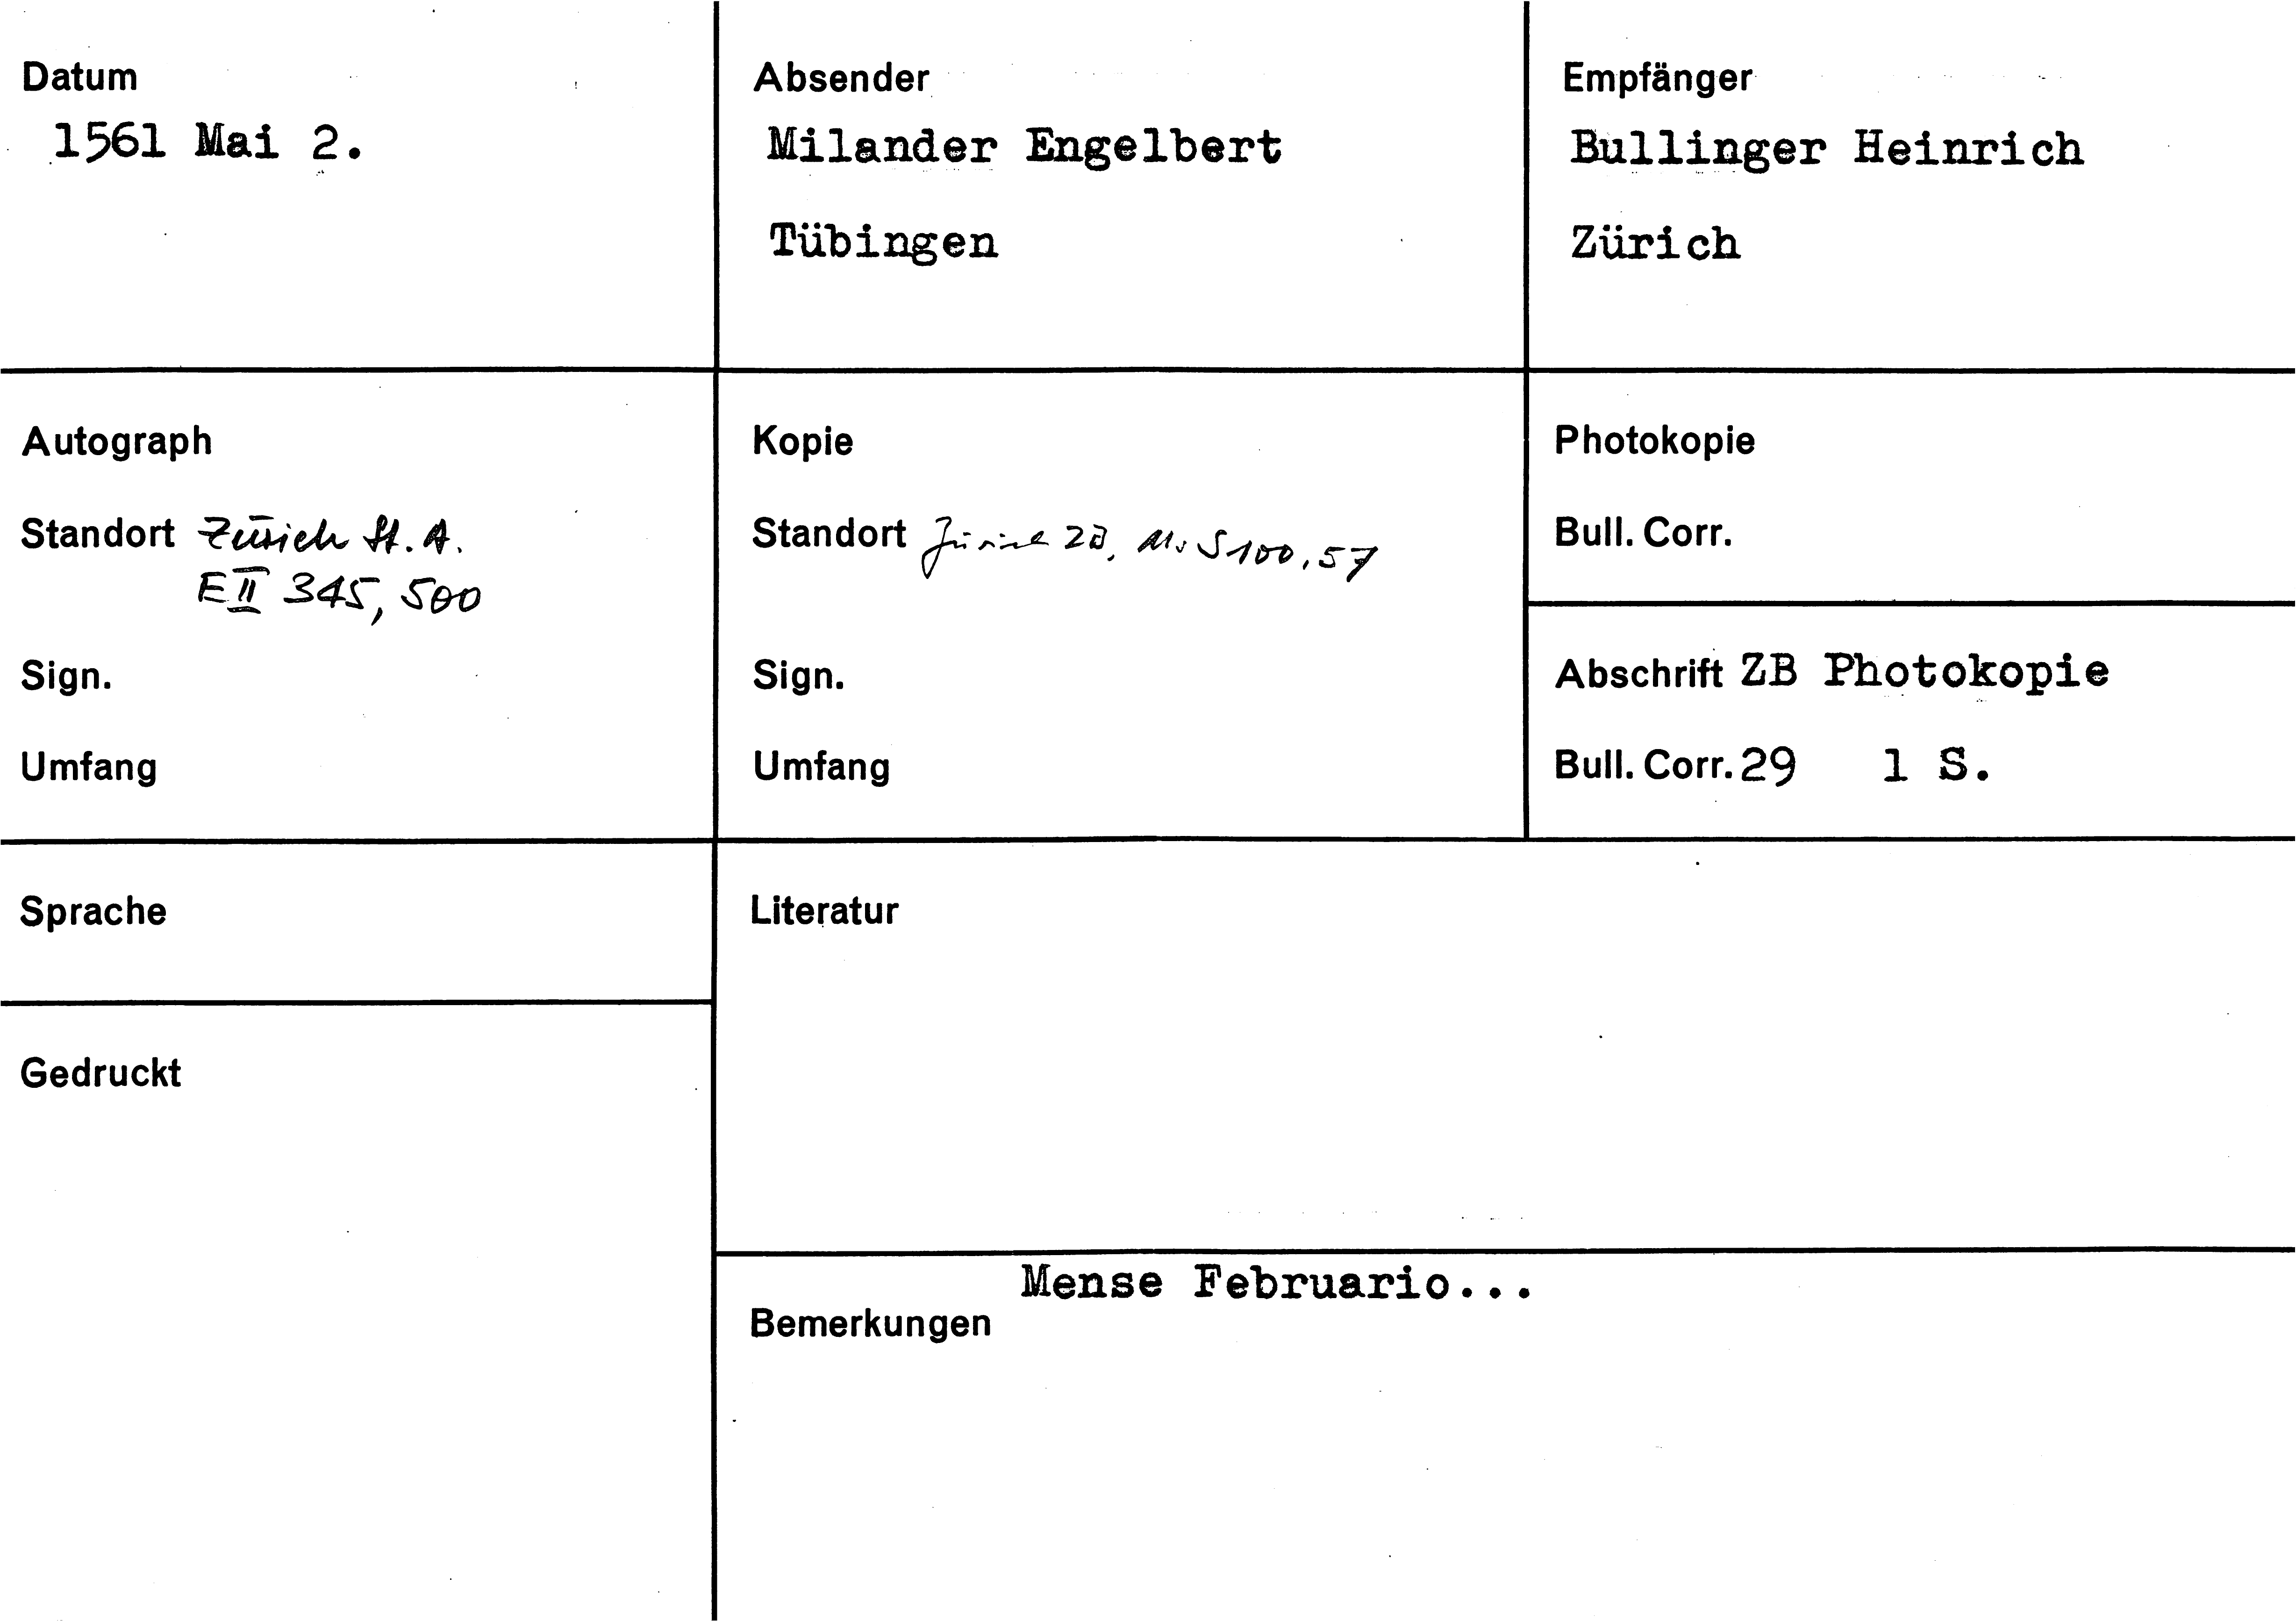 Datum
1561 Mai 2.
Absender
Milander Engelbert
Tübingen
Empfänger
Bullinger Heinrich
Zürich
Autograph
Standort Zürich St. A.
E II 345, 500
Sign.
Umfang
Kopie
Standort Zürich ZB, Ms S 100, 57
Sign.
Umfang
Photokopie
Bull. Corr.
Abschrift ZB Photokopie
Bull. Corr. 29 1 S.
Sprache
Gedruckt
Literatur
Mense Februario...
Bemerkungen